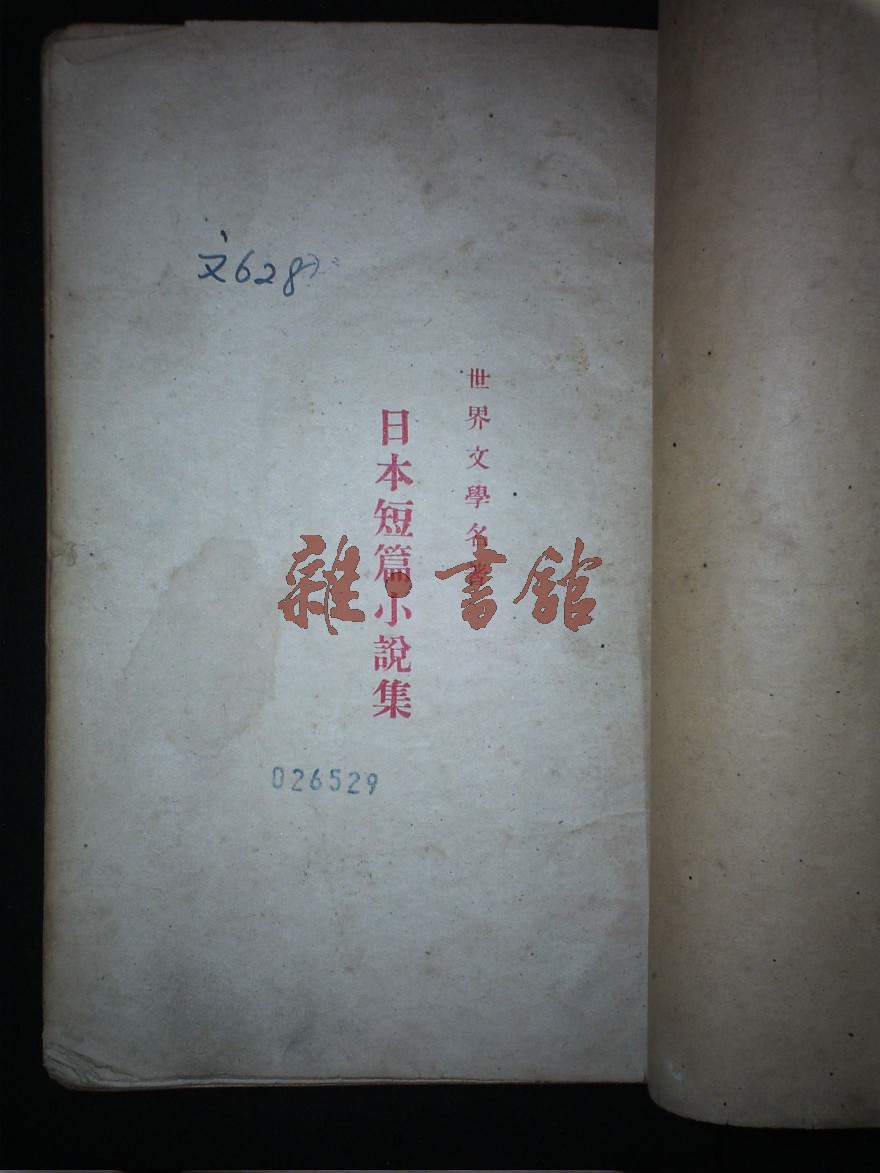 文628
世界文學名著
日本短篇小說集
雜·書館
026529